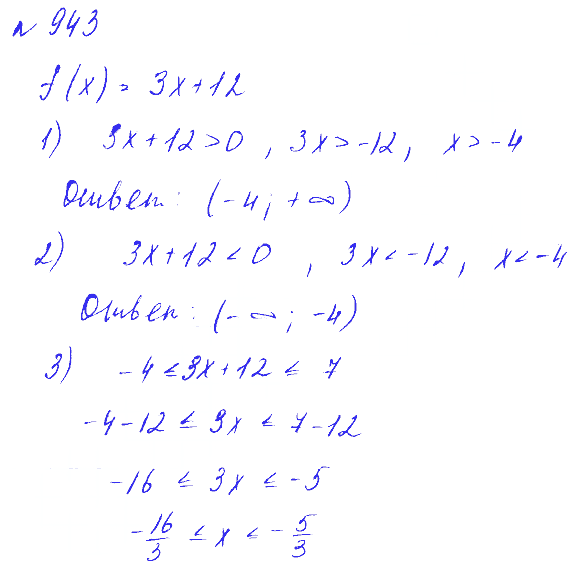 № 943
f(x) = 3x+12
1) 3x+12>0 , 3x>-12, x>-4
Ответ: (-4; +∞)
2) 3x+12<0 , 3x<-12, x<-4
Ответ: (-∞; -4)
3) -4≤3x+12 ≤ 7
-4-12 ≤ 3x ≤ 7-12
-16 ≤ 3x ≤ -5
-16/3 ≤ x ≤ -5/3